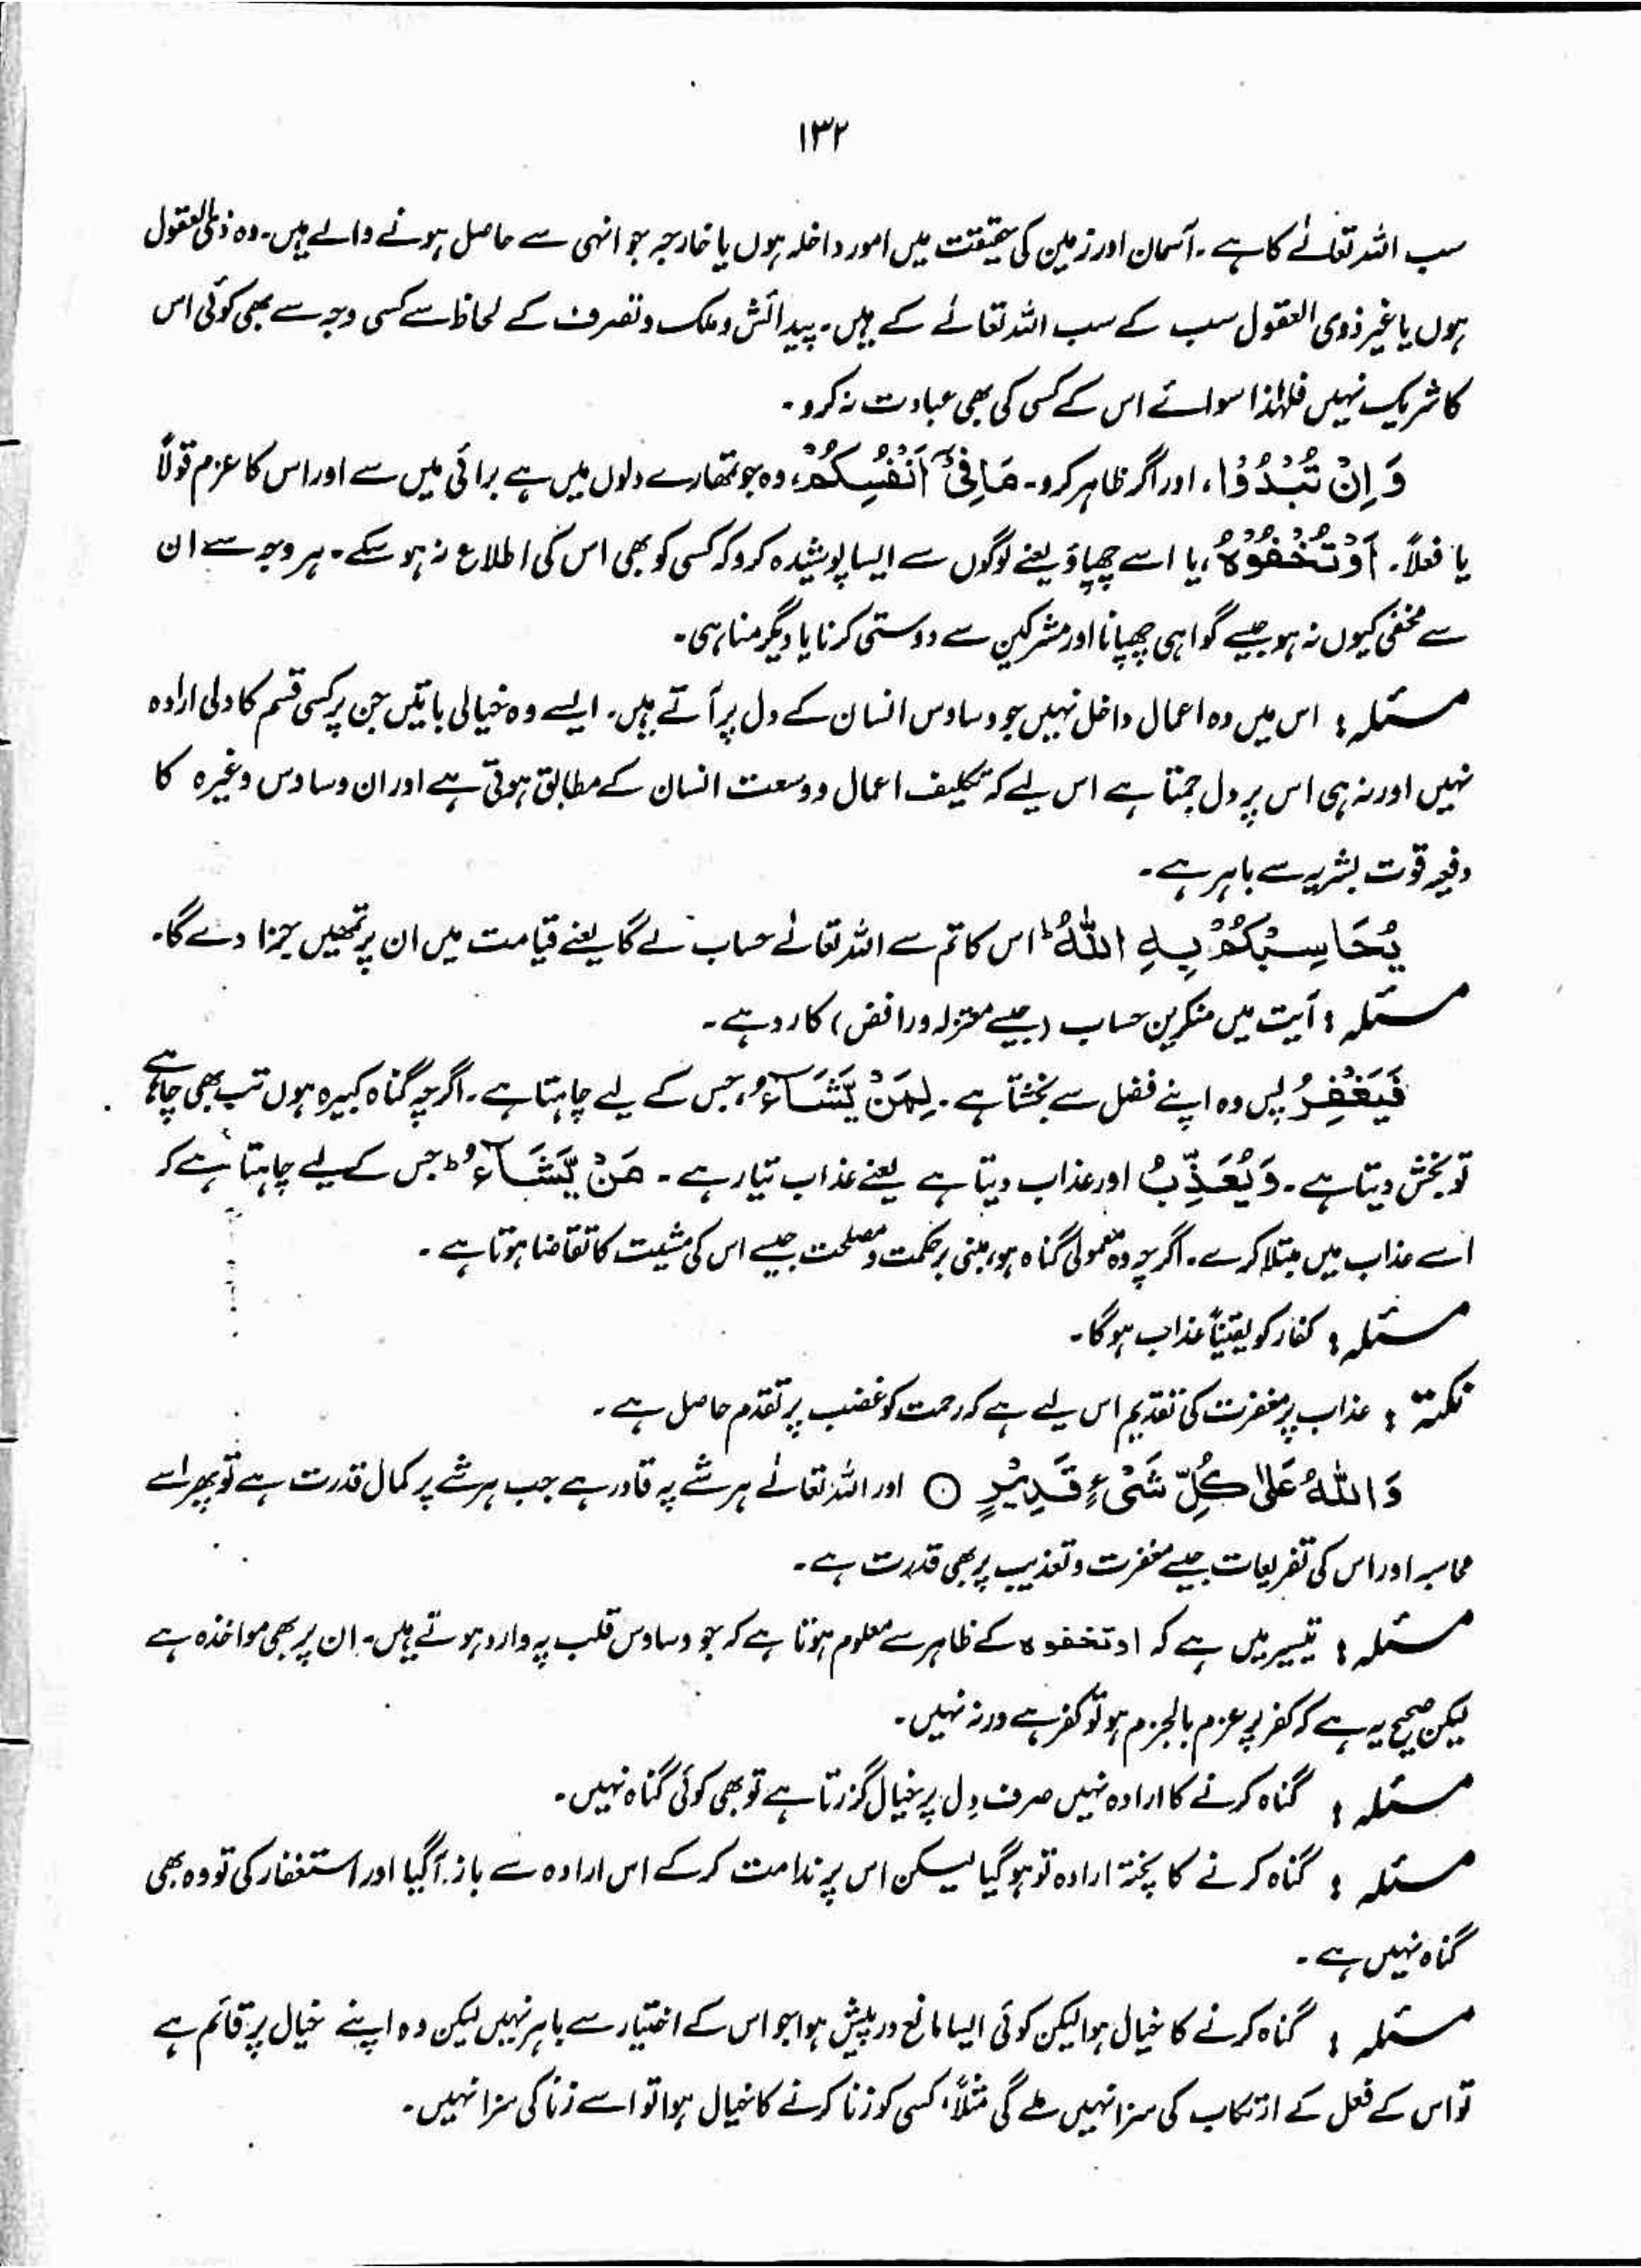 ۱۳۲
سب اللہ تعالےٰ کا ہے۔ آسمان اور زمین کی حقیقت میں امور داخلہ ہوں یا خارجہ جو انہی سے حاصل ہونے والے ہیں۔ وہ ذوی العقول
ہوں یا غیر ذوی العقول سب کے سب اللہ تعالےٰ کے ہیں۔ پیدائش و ملک و تصرف کے لحاظ سے کسی وجہ سے بھی کوئی اس
کا شریک نہیں فلہٰذا سوائے اس کے کسی کی بھی عبادت نہ کرو۔
وَ اِنْ تُبْدُوْا، اور اگر ظاہر کرو۔ مَا فِیْٓ اَنْفُسِکُمْ، وہ جو تمھارے دلوں میں ہے برائی میں سے اور اس کا عزم قولاً
یا فعلاً۔ اَوْ تُخْفُوْہُ، یا اسے چھپاؤ یعنے لوگوں سے ایسا پوشیدہ کرو کہ کسی کو بھی اس کی اطلاع نہ ہو سکے۔ ہر وجہ سے ان
سے مخفی کیوں نہ ہو جیسے گواہی چھپانا اور مشرکین سے دوستی کرنا یا دیگر مناہی۔
مسئلہ : اس میں وہ اعمال داخل نہیں جو وساوس انسان کے دل پر آتے ہیں۔ ایسے وہ خیالی باتیں جن پر کسی قسم کا دلی ارادہ
نہیں اور نہ ہی اس پر دل جمتا ہے اس لیے کہ تکلیف اعمال و وسعت انسان کے مطابق ہوتی ہے اور ان وساوس وغیرہ کا
دفیعہ قوت بشریہ سے باہر ہے۔
یُحَاسِبْکُمْ بِہِ اللّٰہُ ؕ اس کا تم سے اللہ تعالےٰ حساب لے گا یعنے قیامت میں ان پر تمھیں جزا دے گا۔
مسئلہ : آیت میں منکرین حساب (جیسے معتزلہ و روافض) کا رد ہے۔
فَیَغْفِرُ پس وہ اپنے فضل سے بخشتا ہے۔ لِمَنْ یَّشَآءُ، جس کے لیے چاہتا ہے۔ اگرچہ گناہ کبیرہ ہوں تب بھی چاہے
تو بخش دیتا ہے۔ وَیُعَذِّبُ اور عذاب دیتا ہے یعنے عذاب تیار ہے۔ مَنْ یَّشَآءُ ؕ جس کے لیے چاہتا ہے کہ
اسے عذاب میں مبتلا کرے۔ اگرچہ وہ معمولی گناہ ہو، مبنی بر حکمت و مصلحت جیسے اس کی مشیت کا تقاضا ہوتا ہے۔
مسئلہ : کفار کو یقیناً عذاب ہوگا۔
نکتہ : عذاب پر مغفرت کی تقدیم اس لیے ہے کہ رحمت کو غضب پر تقدم حاصل ہے۔
وَاللّٰہُ عَلٰی کُلِّ شَیْءٍ قَدِیْرٌ ○ اور اللہ تعالےٰ ہر شے پہ قادر ہے جب ہر شے پر کمال قدرت ہے تو پھر اسے
محاسبہ اور اس کی تفریعات جیسے مغفرت و تعذیب پر بھی قدرت ہے۔
مسئلہ : تیسیر میں ہے کہ او تخفوہ کے ظاہر سے معلوم ہوتا ہے کہ جو وساوس قلب پہ وارد ہوتے ہیں۔ ان پر بھی مواخذہ ہے
لیکن صحیح یہ ہے کہ کفر پر عزم بالجزم ہو تو کفر ہے ورنہ نہیں۔
مسئلہ : گناہ کرنے کا ارادہ نہیں صرف دِل پر خیال گزرتا ہے تو بھی کوئی گناہ نہیں۔
مسئلہ : گناہ کرنے کا پختہ ارادہ تو ہو گیا لیکن اس پر ندامت کر کے اس ارادہ سے باز آ گیا اور استغفار کی تو وہ بھی
گناہ نہیں ہے۔
مسئلہ : گناہ کرنے کا خیال ہوا لیکن کوئی ایسا مانع درپیش ہوا جو اس کے اختیار سے باہر نہیں لیکن وہ اپنے خیال پر قائم ہے
تو اس کے فعل کے ارتکاب کی سزا نہیں ملے گی مثلاً، کسی کو زنا کرنے کا خیال ہوا تو اسے زنا کی سزا نہیں۔